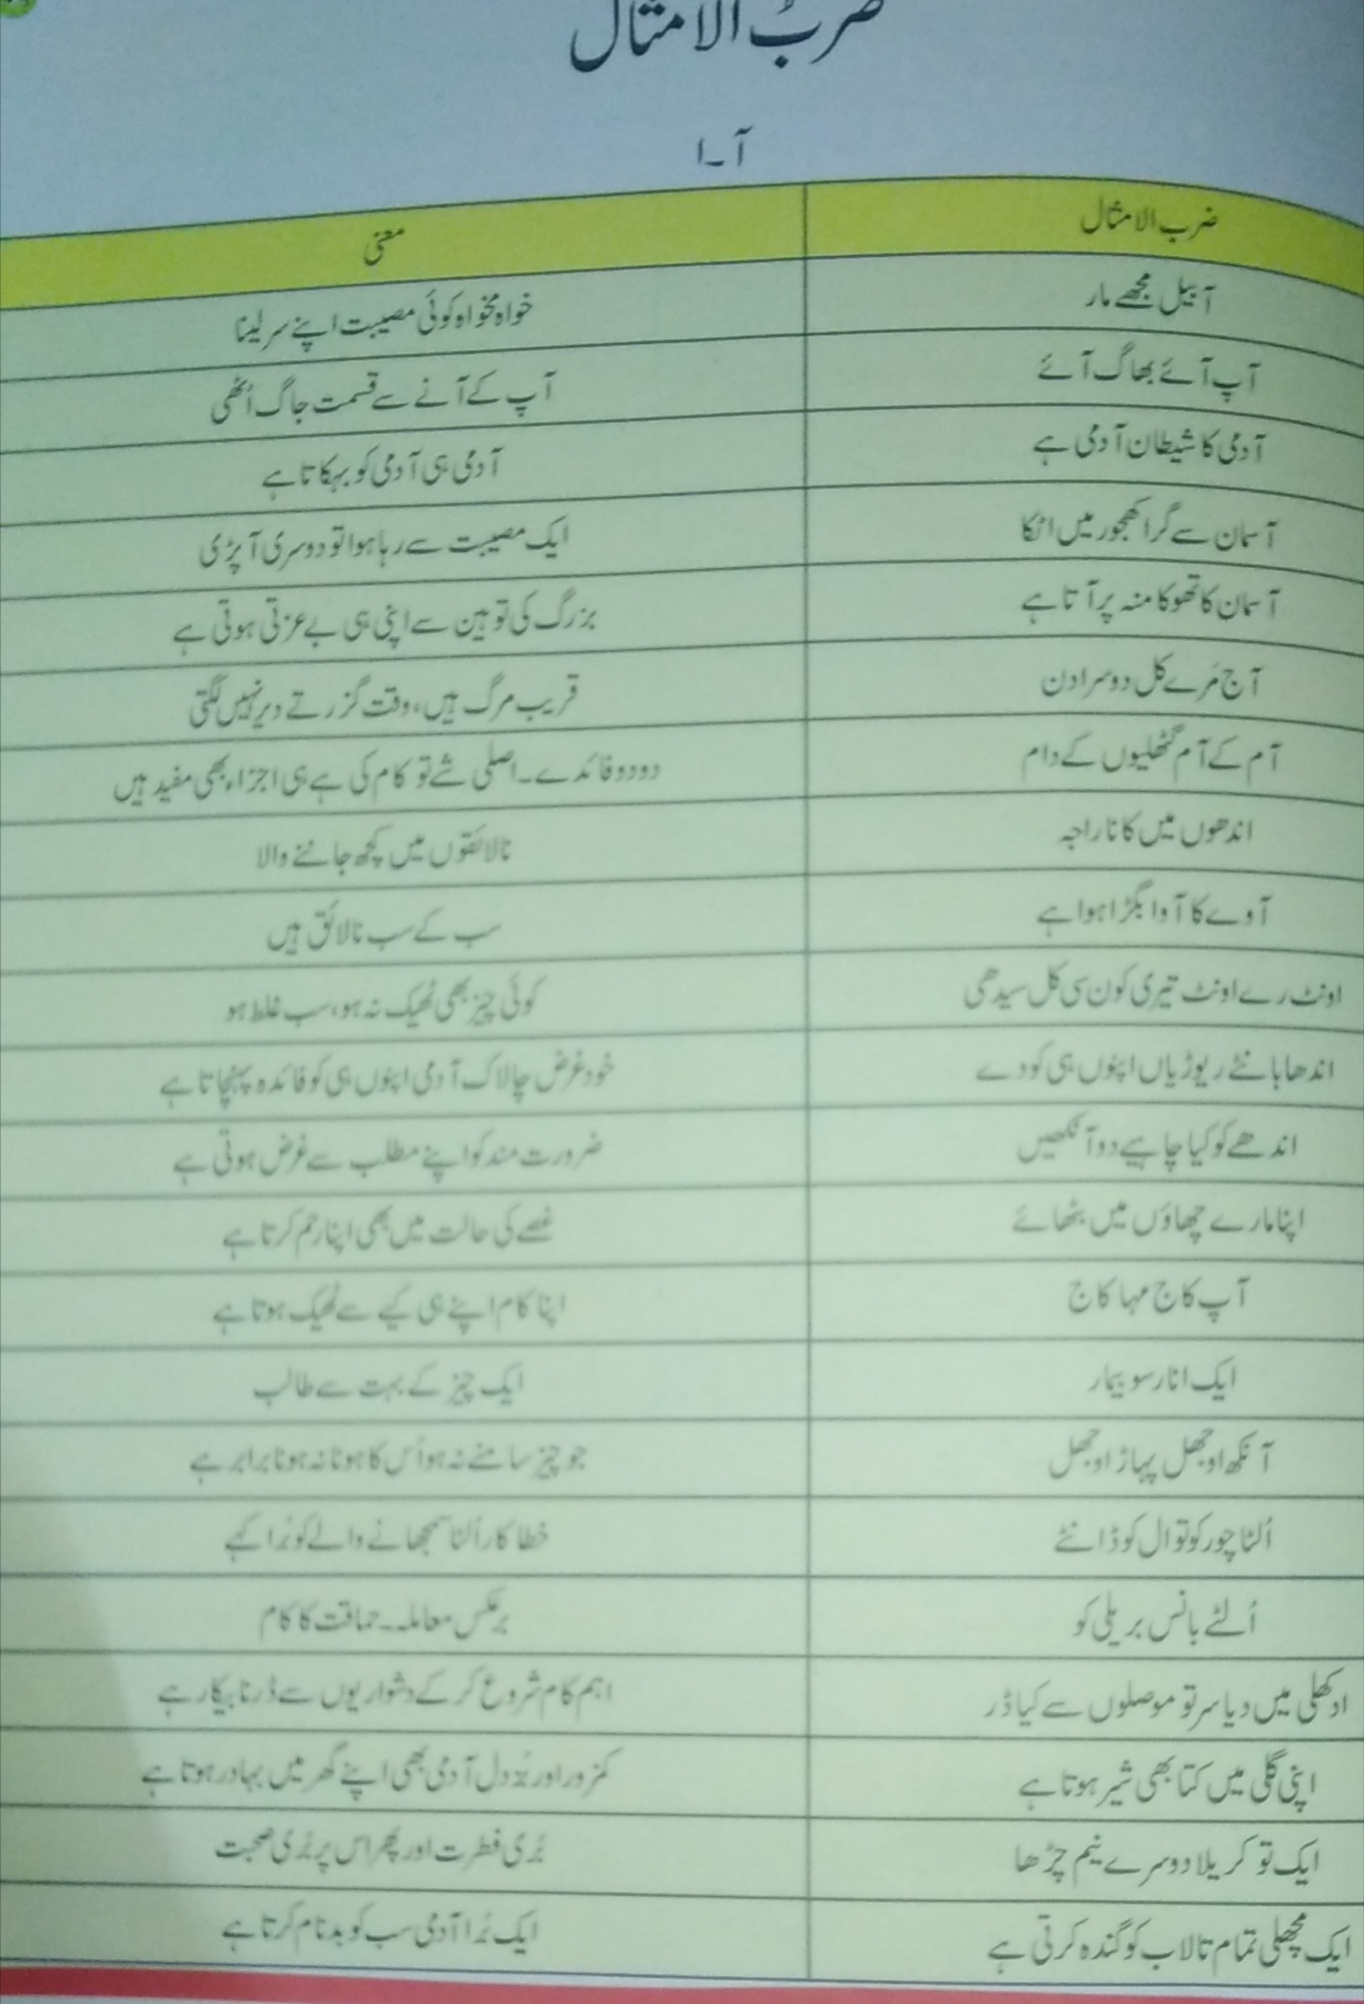 ضربُ الامثال
آ۔ا
ضرب الامثال	معنی
آ بیل مجھے مار	خواہ مخواہ کوئی مصیبت اپنے سر لینا
آپ آئے بھاگ آئے	آپ کے آنے سے قسمت جاگ اُٹھی
آدمی کا شیطان آدمی ہے	آدمی ہی آدمی کو بہکاتا ہے
آسمان سے گرا کھجور میں اٹکا	ایک مصیبت سے رہا ہوا تو دوسری آ پڑی
آسمان کا تھوکا منہ پر آتا ہے	بزرگ کی توہین سے اپنی ہی بے عزتی ہوتی ہے
آج مَرے کل دوسرا دن	قریب مرگ ہیں، وقت گزرتے دیر نہیں لگتی
آم کے آم گٹھلیوں کے دام	دو دو فائدے۔ اصلی شے تو کام کی ہے ہی اجزاء بھی مفید ہیں
اندھوں میں کانا راجہ	نالائقوں میں کچھ جاننے والا
آوے کا آوا بگڑا ہوا ہے	سب کے سب نالائق ہیں
اونٹ رے اونٹ تیری کون سی کل سیدھی	کوئی چیز بھی ٹھیک نہ ہو، سب غلط ہو
اندھا بانٹے ریوڑیاں اپنوں ہی کو دے	خود غرض چالاک آدمی اپنوں ہی کو فائدہ پہنچاتا ہے
اندھے کو کیا چاہیے دو آنکھیں	ضرورت مند کو اپنے مطلب سے غرض ہوتی ہے
اپنا مارے چھاؤں میں بٹھائے	غصے کی حالت میں بھی اپنا رحم کرتا ہے
آپ کاج مہا کاج	اپنا کام اپنے ہی کیے سے ٹھیک ہوتا ہے
ایک انار سو بیمار	ایک چیز کے بہت سے طالب
آنکھ اوجھل پہاڑ اوجھل	جو چیز سامنے نہ ہو اُس کا ہونا نہ ہونا برابر ہے
اُلٹا چور کوتوال کو ڈانٹے	خطا کار اُلٹا سمجھانے والے کو بُرا کہے
اُلٹے بانس بریلی کو	برعکس معاملہ۔۔ حماقت کا کام
اوکھلی میں دیا سر تو موصلوں سے کیا ڈر	اہم کام شروع کر کے دشواریوں سے ڈرنا بیکار ہے
اپنی گلی میں کتا بھی شیر ہوتا ہے	کمزور اور بُزدل آدمی بھی اپنے گھر میں بہادر ہوتا ہے
ایک تو کریلا دوسرے نیم چڑھا	بُری فطرت اور پھر اس پر بُری صحبت
ایک مچھلی تمام تالاب کو گندہ کرتی ہے	ایک بُرا آدمی سب کو بدنام کرتا ہے